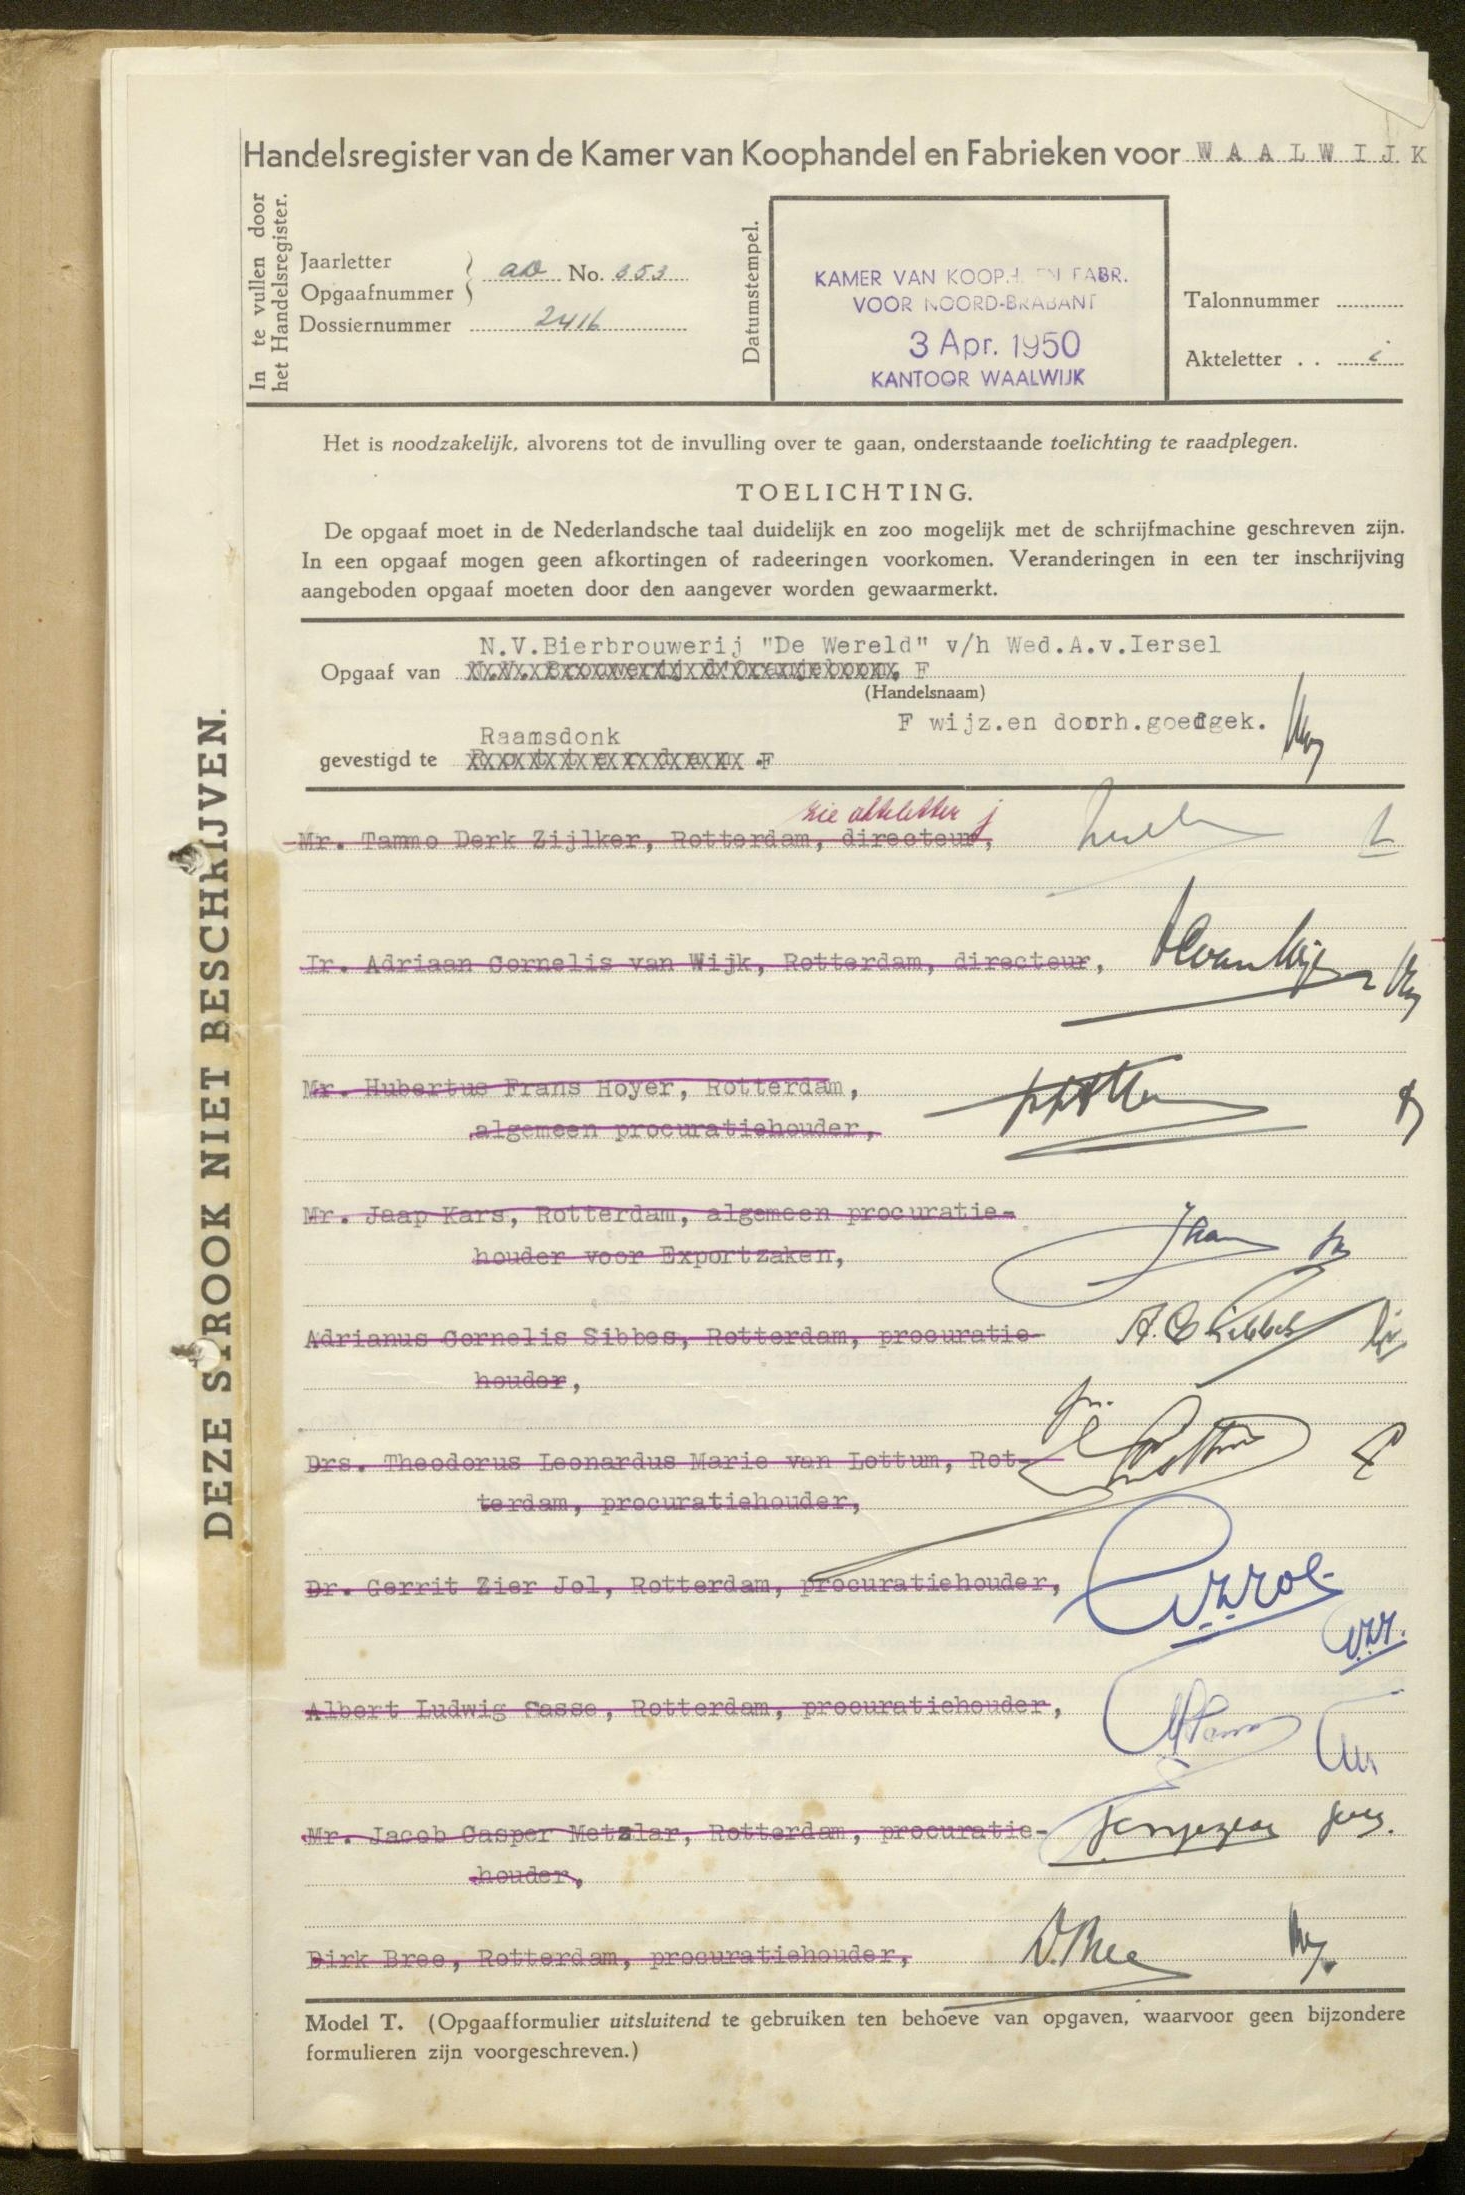 Handelsregister van de Kamer van Koophandel en Fabrieken voor WAALWIJK
In te vullen door
het Handelsregister.
Jaarletter
Opgaafnummer
No. 353
Dossiernummer 2416
Datumstempel.
KAMER VAN KOOPH. EN FABR.
VOOR NOORD-BRABANT
3 Apr. 1950
KANTOOR WAALWIJK
Talonnummer
Akteletter . . i
Het is noodzakelijk, alvorens tot de invulling over te gaan, onderstaande toelichting te raadplegen.
TOELICHTING.
De opgaaf moet in de Nederlandsche taal duidelijk en zoo mogelijk met de schrijfmachine geschreven zijn.
In een opgaaf mogen geen afkortingen of radeeringen voorkomen. Veranderingen in een ter inschrijving
aangeboden opgaaf moeten door den aangever worden gewaarmerkt.
N.V.Bierbrouwerij "De Wereld" v/h Wed.A.v.Iersel
Opgaaf van N.V. Brouwerij d'Oranjeboom. F
(Handelsnaam)
F wijz.en doorh.goedgek.
Raamsdonk
gevestigd te Rotterdam .F
zie akteletter j
Mr. Tammo Derk Zijlker, Rotterdam, directeur,
Ir. Adriaan Cornelis van Wijk, Rotterdam, directeur,
Mr. Hubertus Frans Hoyer, Rotterdam,
algemeen procuratiehouder,
Mr. Jaap Kars, Rotterdam, algemeen procuratie-
houder voor Exportzaken,
Adrianus Cornelis Sibbes, Rotterdam, procuratie-
A.C. Sibbes
houder,
Drs. Theodorus Leonardus Marie van Lottum, Rot-
terdam, procuratiehouder,
Dr. Gerrit Zier Jol, Rotterdam, procuratiehouder,
Albert Ludwig Sasse, Rotterdam, procuratiehouder,
Mr. Jacob Casper Metzlar, Rotterdam, procuratie-
houder,
Dirk Bree, Rotterdam, procuratiehouder,
D. Bree
Model T. (Opgaafformulier uitsluitend te gebruiken ten behoeve van opgaven, waarvoor geen bijzondere
formulieren zijn voorgeschreven.)
DEZE STROOK NIET BESCHRIJVEN.